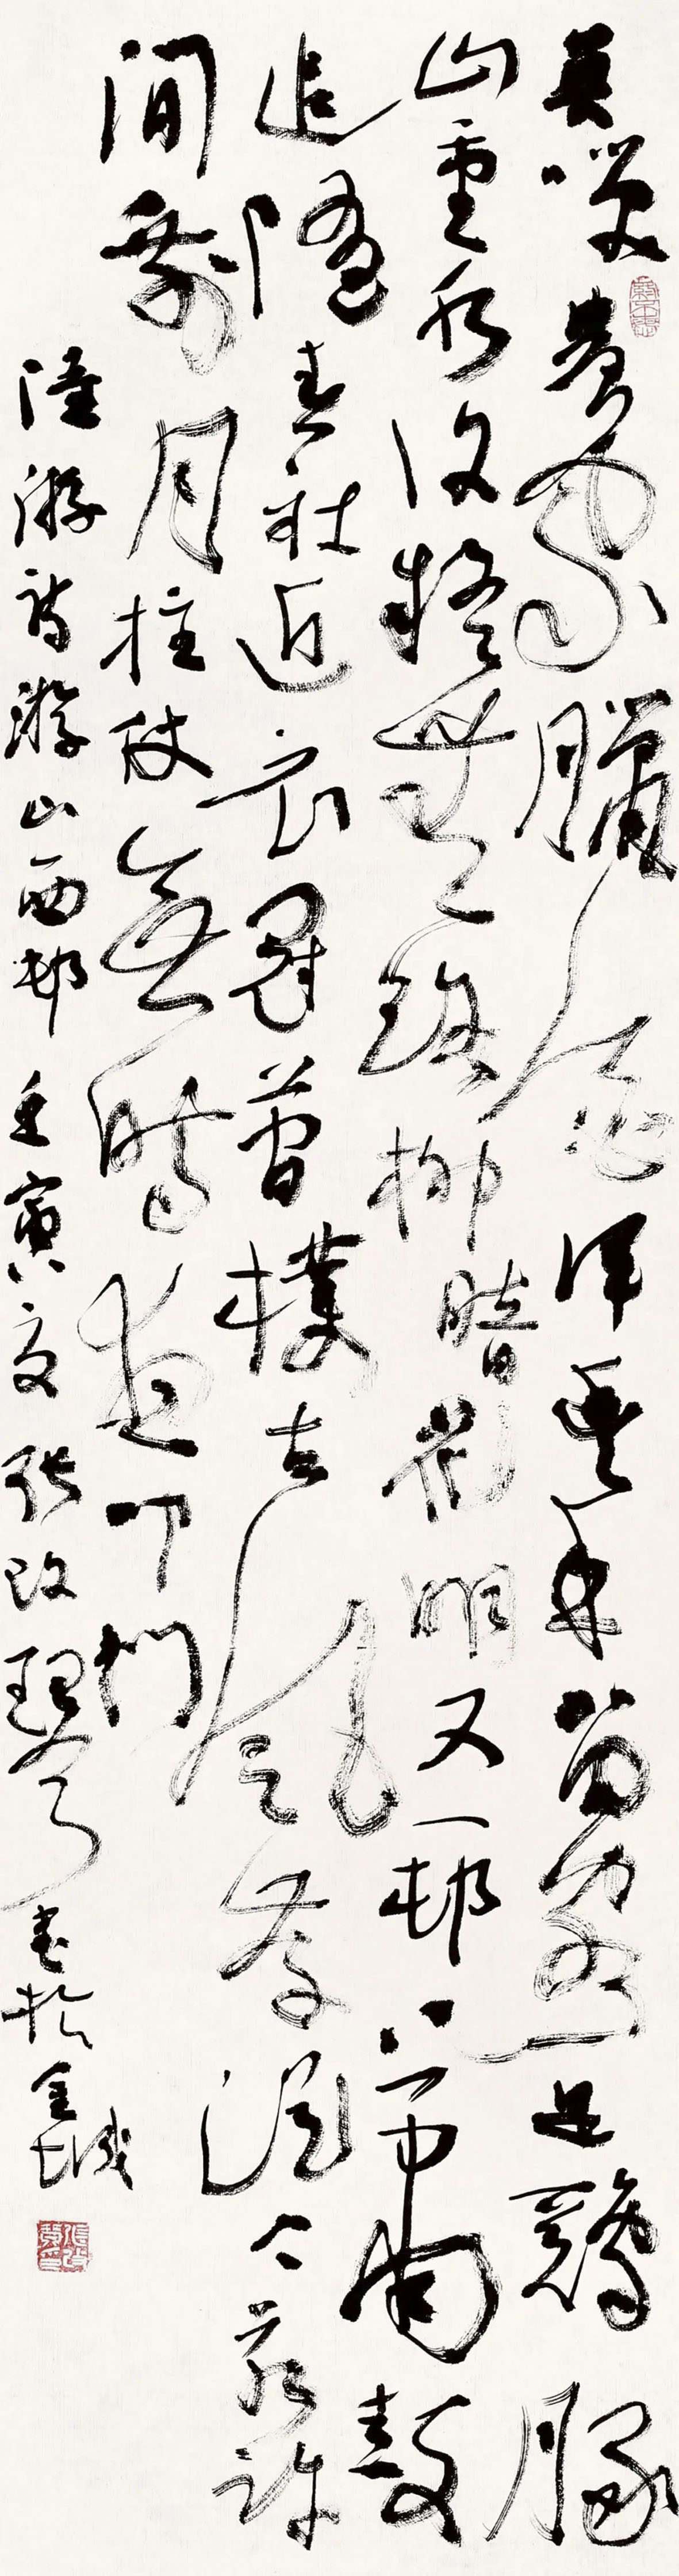 莫笑農家臘酒渾豐年留客足鷄豚
山重水複疑無路柳暗花明又一邨簫鼓
追隨春社近衣冠簡樸古風存從今若許
閒乘月拄杖無時夜叩門
陸游詩游山西邨 壬寅夏 張改琴 書於金城